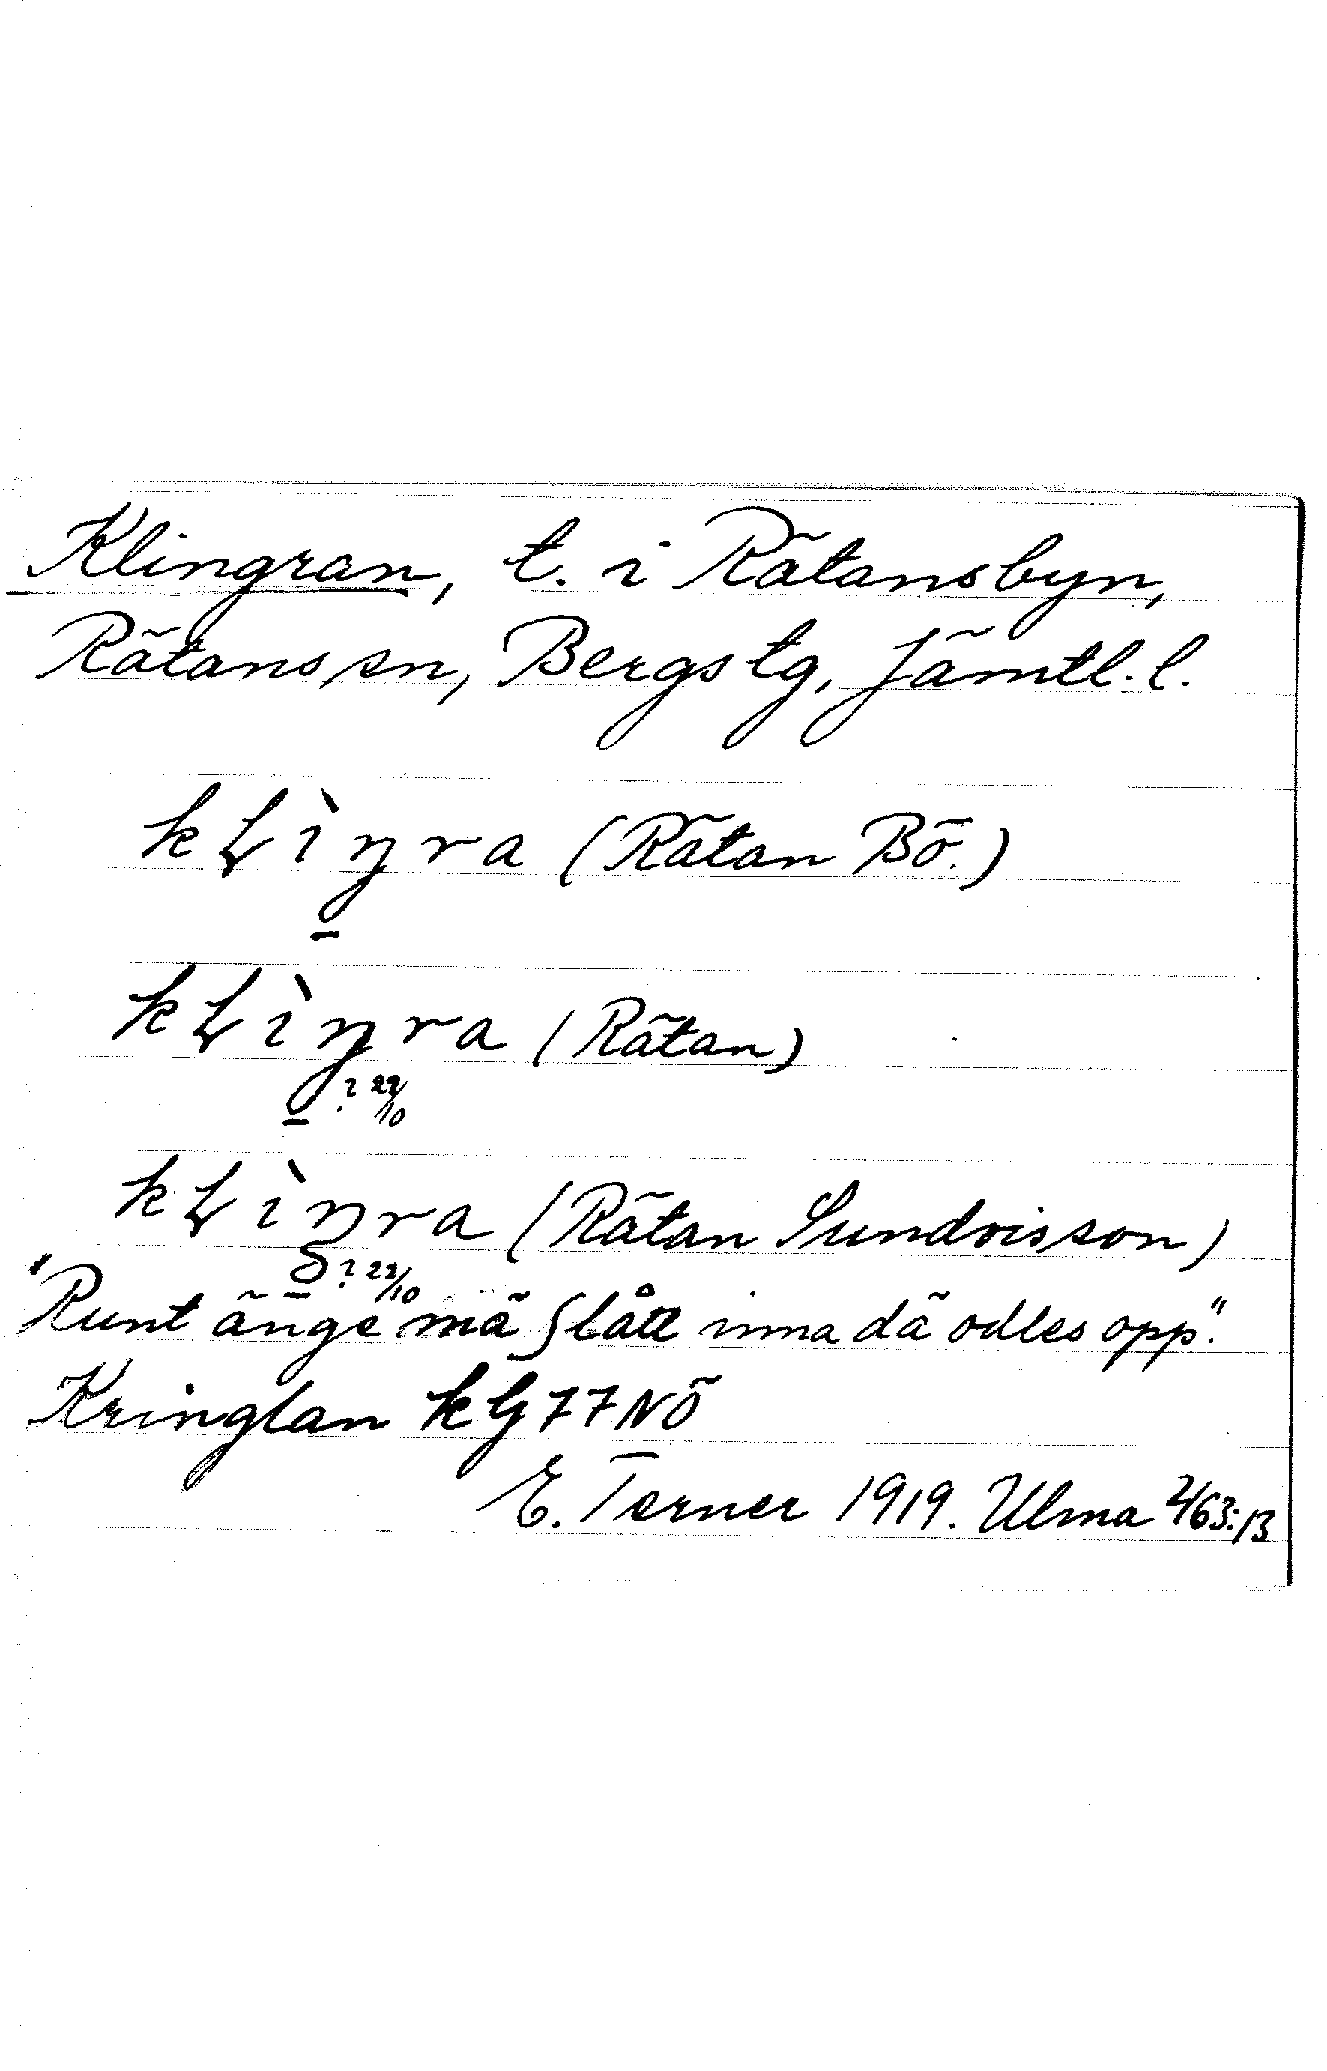 Klingran, t. i Rätansbyn,
Rätans sn, Bergs tg, Jämtl. l.
kⱡìŋra (Rätan Bö.)
kⱡìŋra (Rätan)
? 22/10
kⱡìŋra (Rätan Sundvisson)
? 22/10
"Runt änge mä slått inna dä odles opp."
Kringlan kG 77 NÖ
E. Terner 1919. Ulma 2/63:13